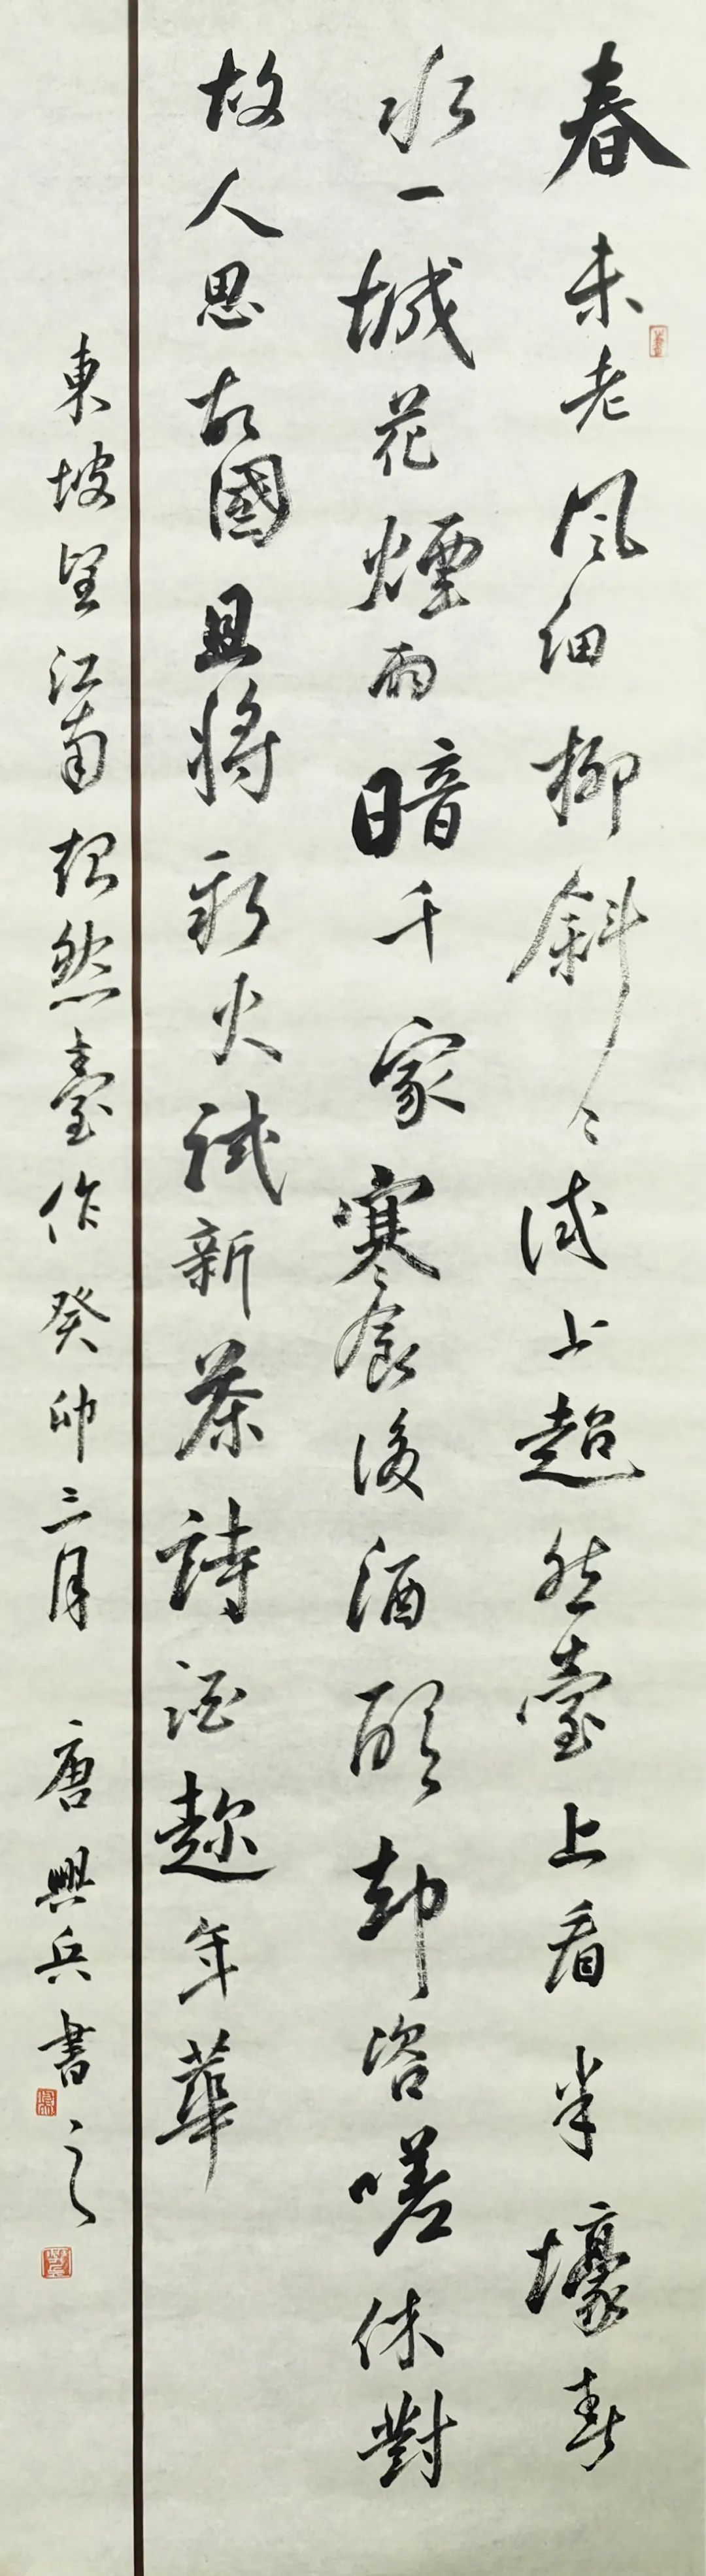 春未老風細柳斜々试上超然臺上看半壕春
水一城花煙雨暗千家寒食後酒醒却咨嗟休對
故人思故國且將新火試新茶詩酒趁年華
東坡望江南超然臺作癸卯三月 唐興兵書之